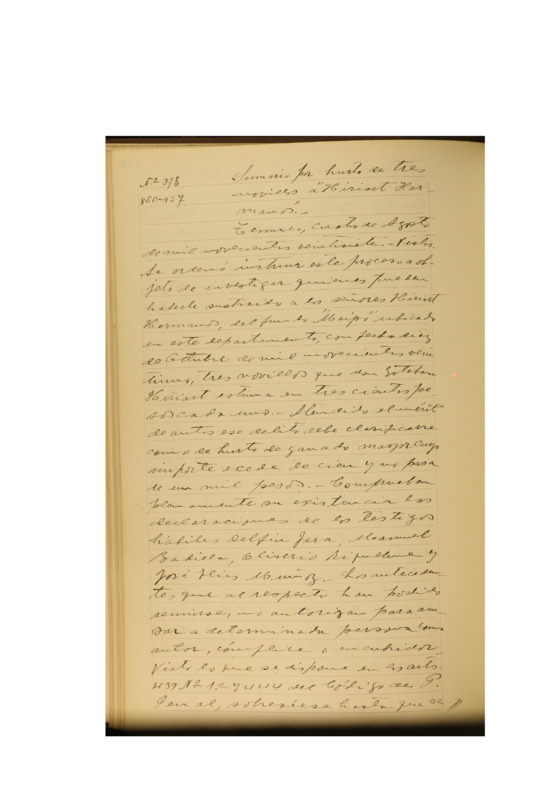 Nº 375
850-127
Sumario por hurto de tres
novillos á "Hiriart Her-
manos".-
Temuco, cuatro de Agosto
de mil novecientos veintisiete.- Vistos.
Se ordenó instruir este proceso a ob-
jeto de investigar quienes puedan
haberle sustraido a los señores Hiriart
Hermanos, del fundo "Maipo" ubicado
en este departamento, con fecha diez
de Octubre de mil novecientos vein
tiuno, tres novillos que don Esteban
Hiriart estima en trescientos pe
sos cada uno.- Atendido el mérito
de autos ese delito debe clasificarse
como de hurto de ganado mayor cuyo
importe excede de cien y no pasa
de un mil pesos.- Comprueban
plenamente su existencia las
declaraciones de los testigos
hábiles Delfin Jara, Manuel
Badilla, Eliserio Riquelme y
José Elías Muñoz.- Los anteceden-
tes que al respecto han podido
reunirse, no autorizan para acu-
sar a determinada persona como
autor, cómplice o encubridor.
Visto lo que se dispone en los arts.
439 Nº 1º y 444 del Código de P.
Penal, sobreséese hasta que se